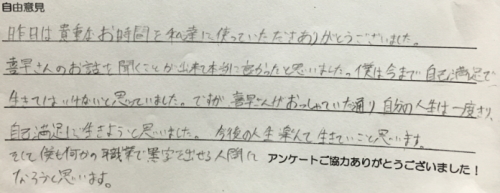 自由意見
昨日は貴重なお時間を私達に使っていただきありがとうございました。
喜早さんのお話を聞くことが出来て本当に良かったと思いました。僕は今まで自己満足で
生きてはいけないと思っていました。ですが喜早さんがおっしゃていた通り自分の人生は一度きり、
自己満足に生きようと思いました。今後の人生楽んで生きていこと思います。
そして僕も何かの職業で黒字を出せる人間に
アンケートご協力ありがとうございました!
なろうと思います。